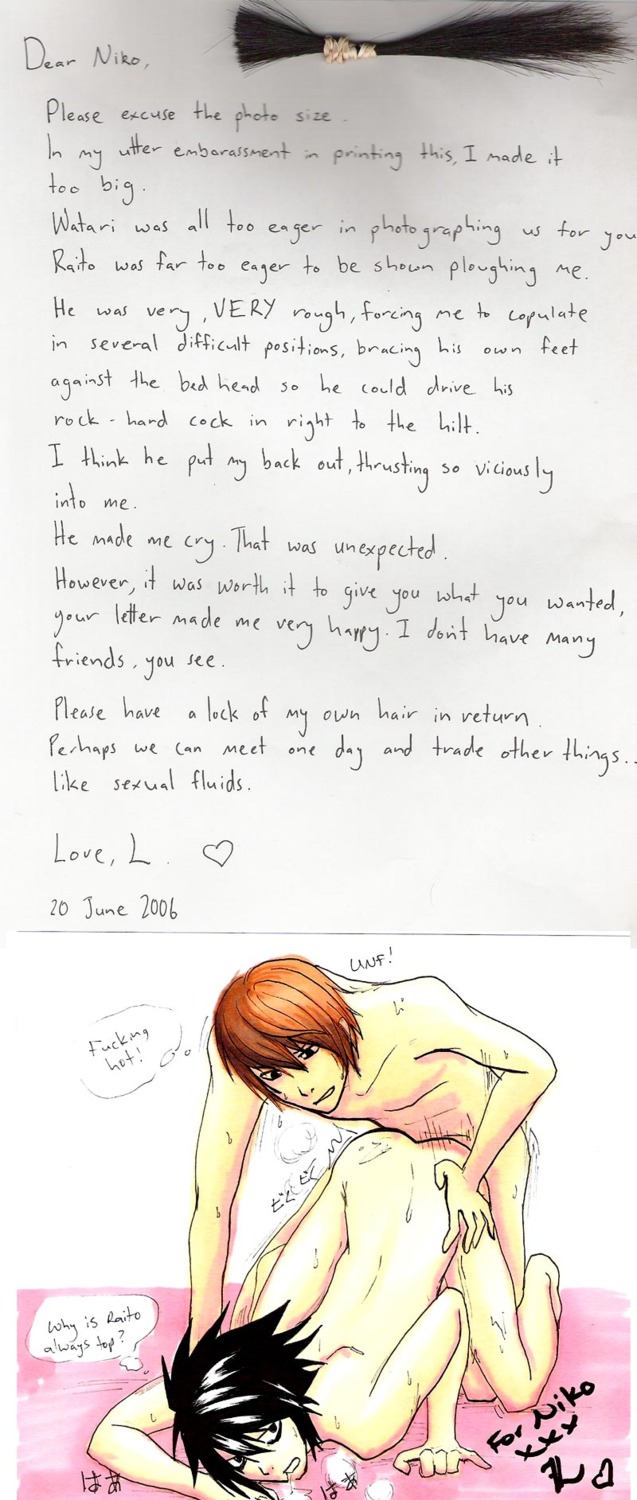 Dear Niko,
Please excuse the photo size.
In my utter embarassment in printing this, I made it
too big.
Watari was all too eager in photographing us for you
Raito was far too eager to be shown ploughing me.
He was very, VERY rough, forcing me to copulate
in several difficult positions, bracing his own feet
against the bed head so he could drive his
rock-hard cock in right to the hilt.
I think he put my back out, thrusting so viciously
into me.
He made me cry. That was unexpected.
However, it was worth it to give you what you wanted,
your letter made me very happy. I don't have many
friends, you see.
Please have a lock of my own hair in return.
Perhaps we can meet one day and trade other things..
like sexual fluids.
Love, L. ♡
20 June 2006
UNF!
Fucking
hot!
Why is Raito
always top?
For Niko
xxx
はぁ
はぁ